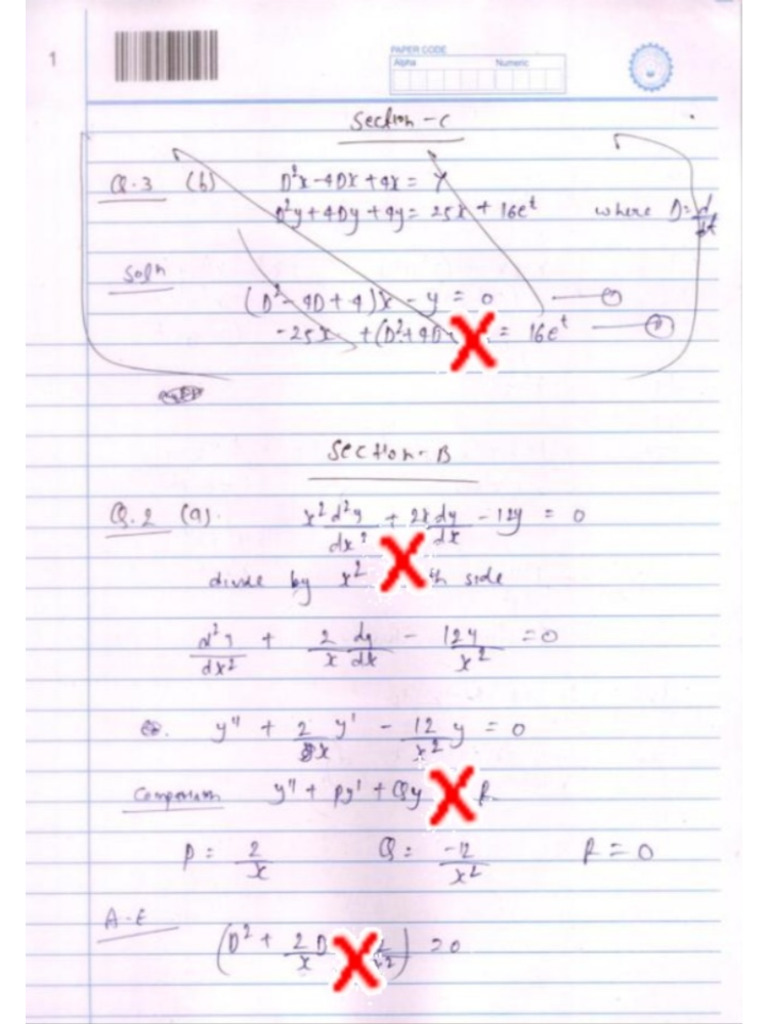 1
PAPER CODE
Alpha Numeric
Section - C
Q.3 (b) D²x - 4Dx + 4x = y
D²y + 4Dy + 4y = 25x + 16e^t where D = d/dt
Soln
(D² - 4D + 4)x - y = 0
-25x + (D² + 4D = 16e^t
Section - B
Q.2 (a). x² d²y/dx² + 2x dy/dx - 12y = 0
divide by x² side
d²y/dx² + 2/x dy/dx - 12y/x² = 0
y'' + 2/x y' - 12/x² y = 0
y'' + py' + Qy R
P = 2/x Q = -12/x² R = 0
A.E
(D² + 2/x D ) = 0